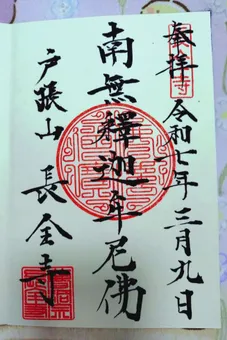 奉拝 令和七年三月九日
南無釋迦牟尼佛
戸張山 長全寺